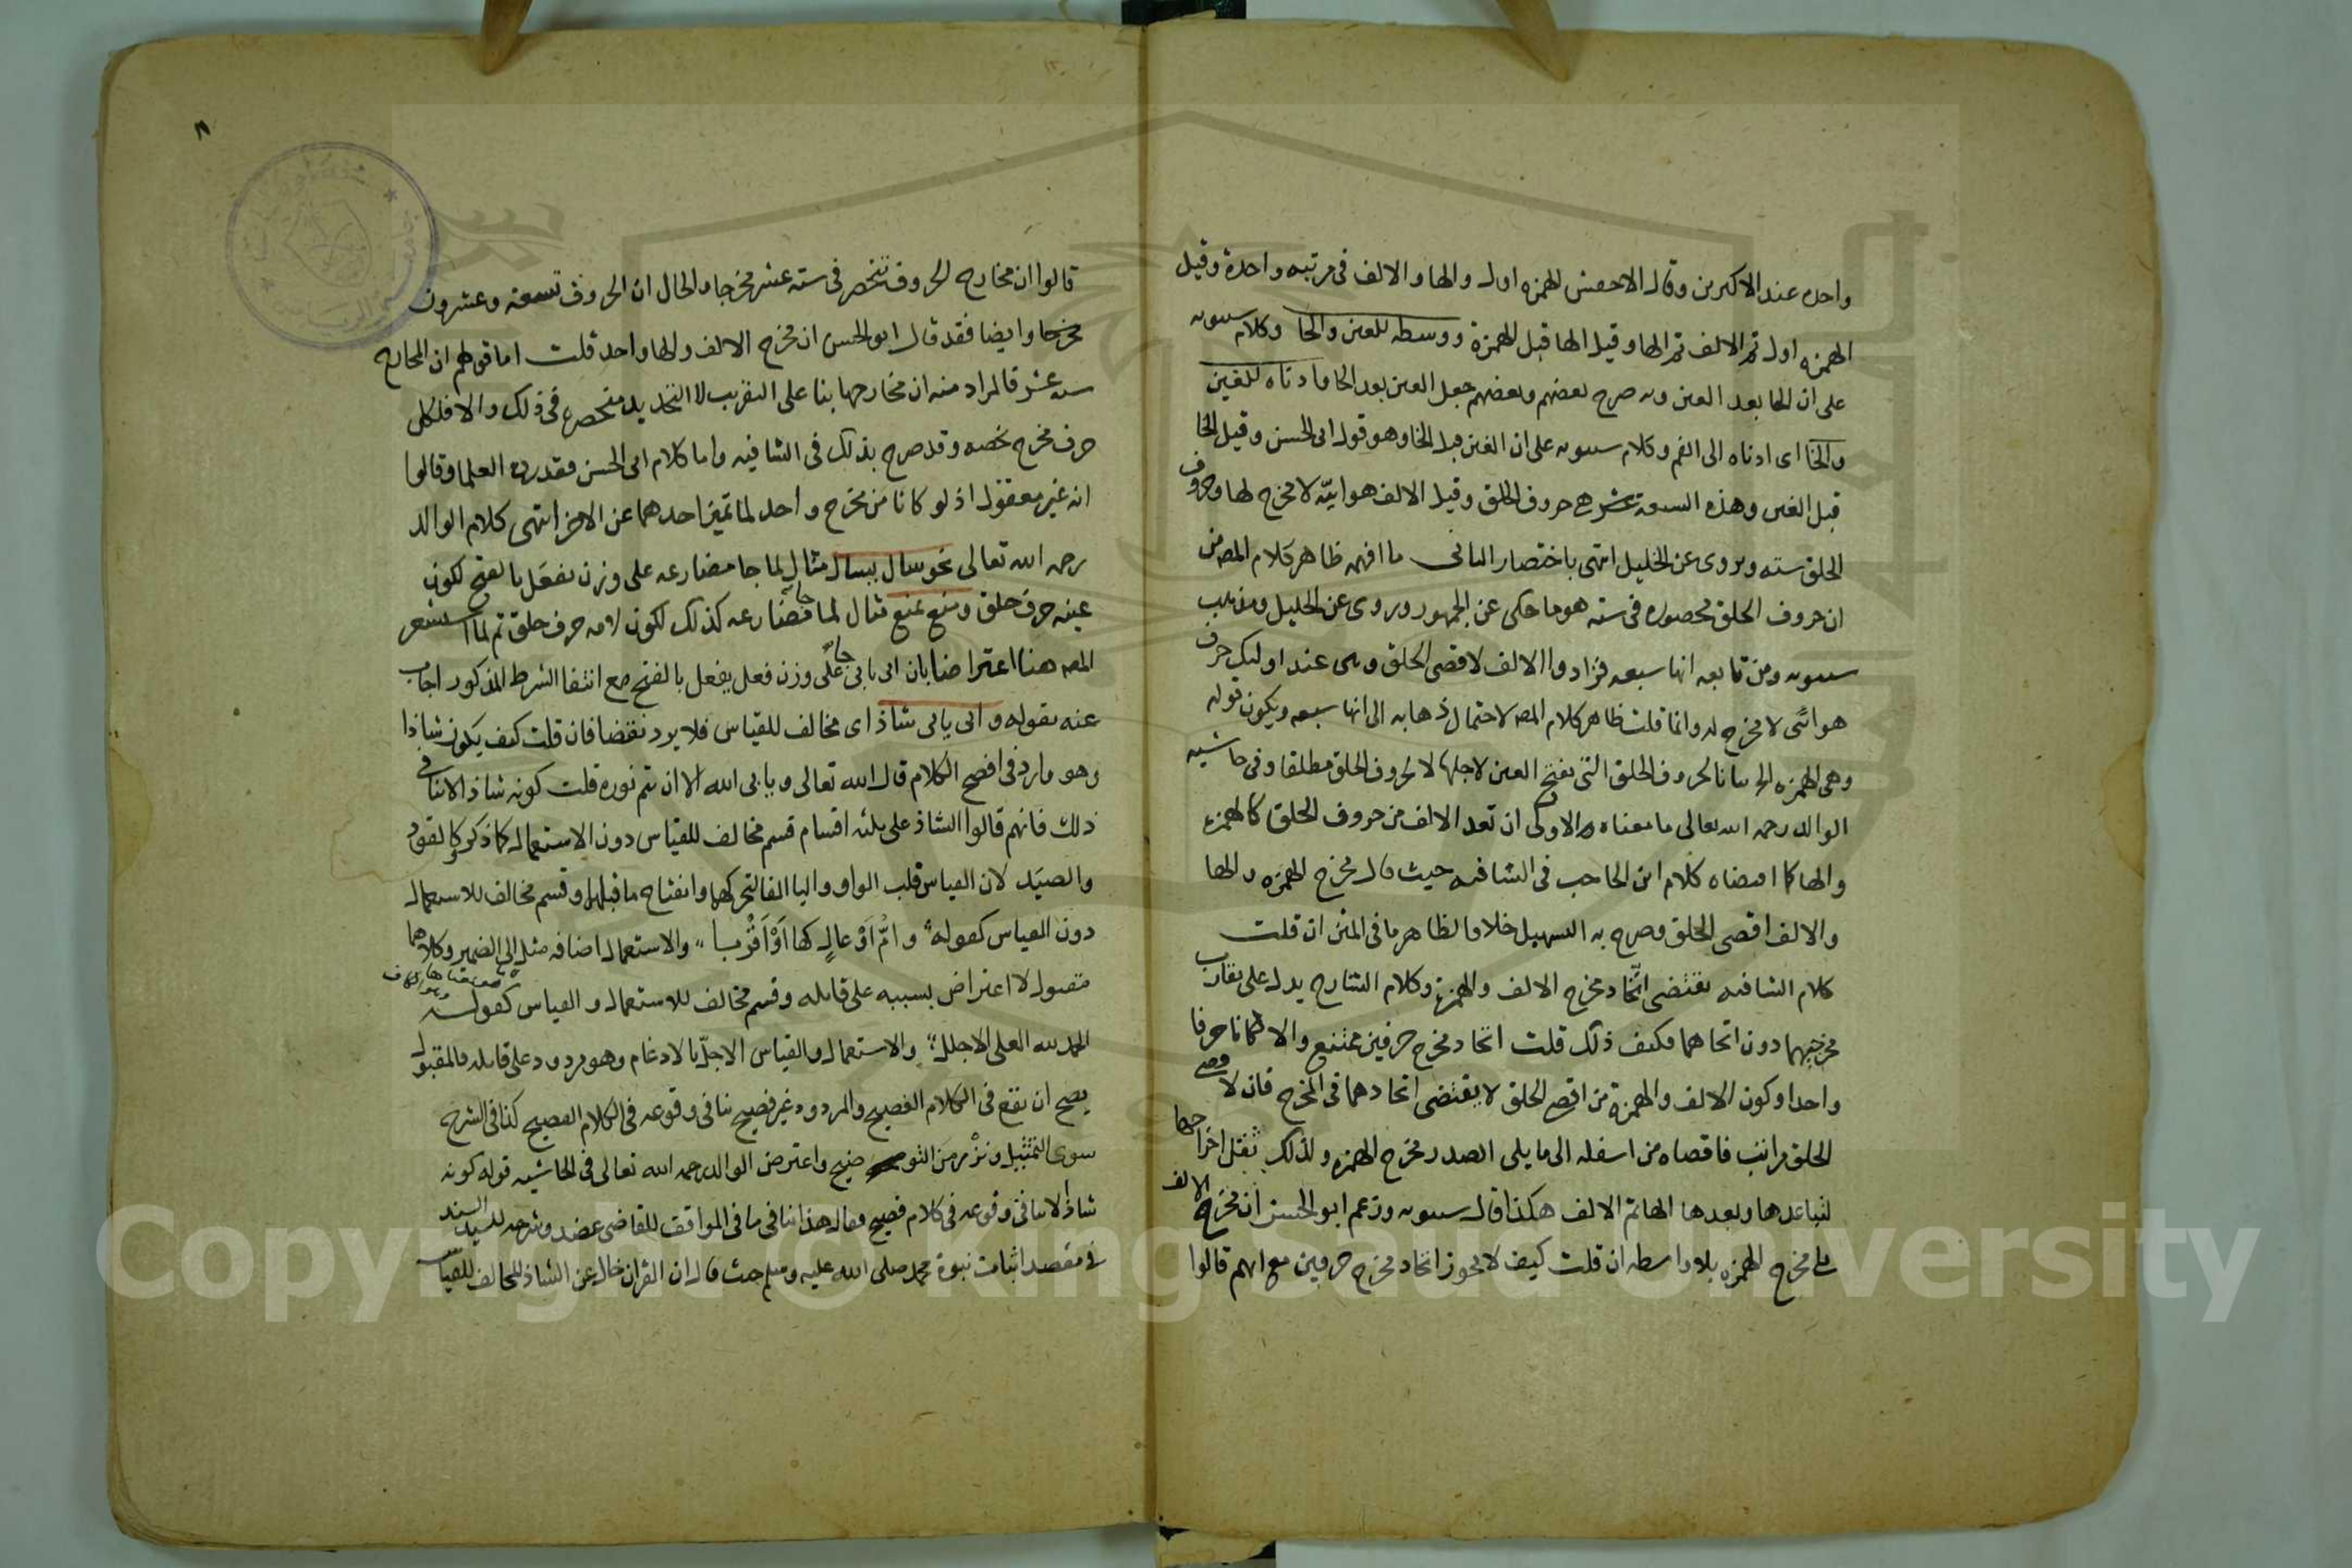 واحده عند الاكثرين وقال الاخفش الهمزه اولا والها والالف فى مرتبه واحدة وقيل
الهمزه اولا ثم الالف ثم الها وقيل الها قبل الهمزة ووسطه للعين والحا وكلام سيبويه
على ان الحا بعد العين وبه صرح بعضهم وبعضهم جعل العين بعد الحا وادناه للغين
والخا اى ادناه الى الفم وكلام سيبويه على ان الغين قبل الخا وهو قول ابى الحسن وقيل الخا
قبل الغين وهذه السبعة هى حروف الحلق وقيل الالف هوائيّه لا مخرج لها وحروف
الحلق سته ويروى عن الخليل انتهى باختصار ما افهمه ظاهر كلام المصه من
ان حروف الحلق محصوره فى سته هو ما حكى عن الجمهور وروى عن الخليل ومذهب
سيبويه ومن تابعه انها سبعه فزادوا الالف لاقصى الحلق وهى عند اوليك حرف
هوائى لا مخرج له وانما قلت ظاهر كلام المصه لاحتمال ذهابه الى انها سبعه ويكون قوله
وهى الهمزه الخ بيانا لحروف الحلق التى تفتح العين لاجلها لا لحروف الحلق مطلقا وفى حاشيه
الوالد رحمه الله تعالى ما معناه والاولى ان تعد الالف من حروف الحلق كالهمزه
والها كما اقتضاه كلام ابن الحاجب فى الشافيه حيث قال مخرج الهمزه والها
والالف اقصى الحلق وصرح به التسهيل خلافا لظاهر ما فى المتن ان قلت
كلام الشافيه يقتضى اتّحاد مخرج الالف والهمزة وكلام الشارح يدل على تقارب
مخرجيهما دون اتحادهما فكيف ذلك قلت اتحاد مخرج حرفين ممتنع والا لكانا حرفا
واحدا وكون الالف والهمزة من اقصى الحلق لا يقتضى اتحادهما فى المخرج فان لاقصى
الحلق مراتب فاقصاه من اسفله الى ما يلى الصدر مخرج الهمزه ولذلك ثقل اخراجها
لتباعدها وبعدها الها ثم الالف هكذا قال سيبويه وزعم ابو الحسن ان مخرج الالف
هو مخرج الهمزه بلا واسطه ان قلت كيف لا يجوز اتحاد مخرج حرفين مع انهم قالوا
قالوا ان مخارج الحروف تنحصر فى سته عشر مخرجا والحال ان الحروف تسعة وعشرون
مخرجا وايضا فقد قال ابو الحسن ان مخرج الالف والها واحد قلت اما قولهم ان المخارج
سته عشر فالمراد منه ان مخارجها بنا على التقريب لا التحديد منحصرة فى ذلك والا فلكل
حرف مخرج يخصه وقد صرح بذلك فى الشافيه واما كلام ابى الحسن فقد رده العلما وقالوا
انه غير معقول اذ لو كانا من مخرج واحد لما تميز احدهما عن الاخر انتهى كلام الوالد
رحمه الله تعالى نحو سال يسال مثال لما جا مضارعه على وزن يفعَل بالفتح لكون
عينه حرف حلق ومنع يمنع مثال لما جا مضارعه كذلك لكون لامه حرف حلق ثم لما استشعر
المصه هنا اعتراضا بان ابى يابى جا على وزن فعل يفعل بالفتح مع انتفا الشرط المذكور اجاب
عنه بقوله وابى يابى شاذ اى مخالف للقياس فلا يرد نقضا فان قلت كيف يكون شاذا
وهو وارد فى افصح الكلام قال الله تعالى ويابى الله الا ان يتم نوره قلت كونه شاذ الا ينافى
ذلك فانهم قالوا الشاذ على ثلثه اقسام قسم مخالف للقياس دون الاستعمال كما ذكر وكالقود
والصيَد لان القياس قلب الواو واليا الفا لتحركهما وانفتاح ما قبلهما وقسم مخالف للاستعمال
دون القياس كقوله وامّ اوعالٍ كها اَوْ اَقْرَبا والاستعمال اضافه مثل الى الضمير وكلاهما
مقبول لا اعتراض بسببه على قايله وقسم مخالف للاستعمال والقياس كقوله
الحمد لله العلى الاجلل والاستعمال والقياس الاجلّ بالادغام وهو مردود على قايله فالمقبول
يصح ان يقع فى الكلام الفصيح والمردود غير فصيح ينافى وقوعه فى الكلام الفصيح كذا فى الشرح
سوى التمثيل ونزْر من التوضيح واعترض الوالد رحمه الله تعالى فى الحاشيه قوله كونه
شاذا لا ينافى وقوعه فى كلام فصيح فقال هذا ينافى ما فى المواقف للقاضى عضد وشرحه للسيد السند
فى مقصد اثبات نبوة محمد صلى الله عليه وسلم حيث قال ان القران خال عن الشاذ المخالف للقياس
Copyright © King Saud University